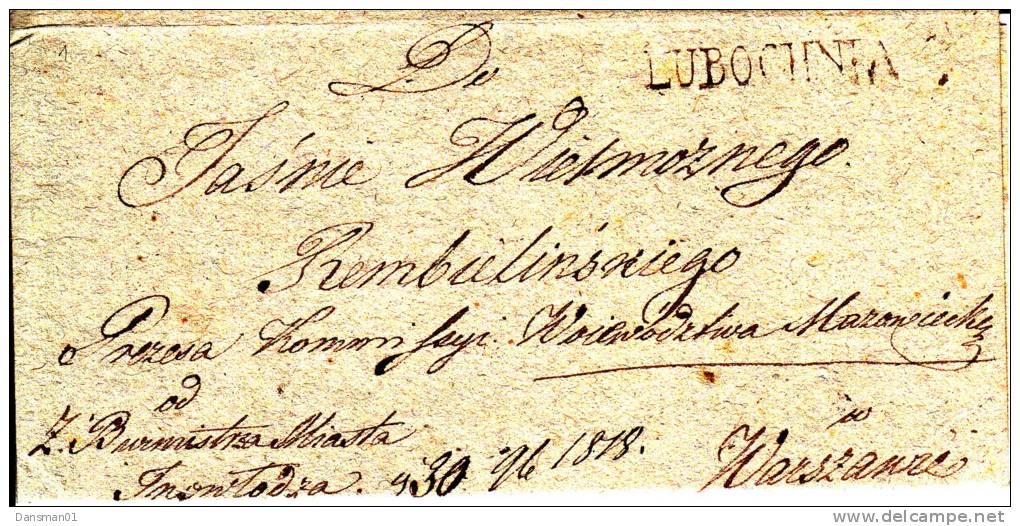 LUBOCHNIA
Do
Jaśnie Wielmożnego.
Rembielińskiego
Prezesa Kommissyi Woiewództwa Mazowieckie
od
Z. Burmistrza Miasta
Inowłodza. 30 9b 1818.
w
Warszawie
Dansman01